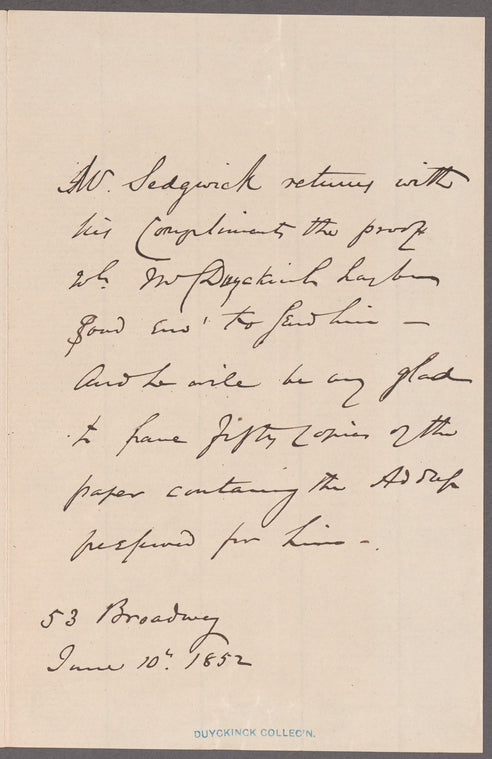 Mr. Sedgwick returns with
his Compliments the proof
wh. Mr Duyckinck has been
good eno' to send him —
And he will be very glad
to have fifty Copies of the
paper containing the Address
preserved for him —.
53 Broadway
June 10th. 1852
DUYCKINCK COLLEC'N.